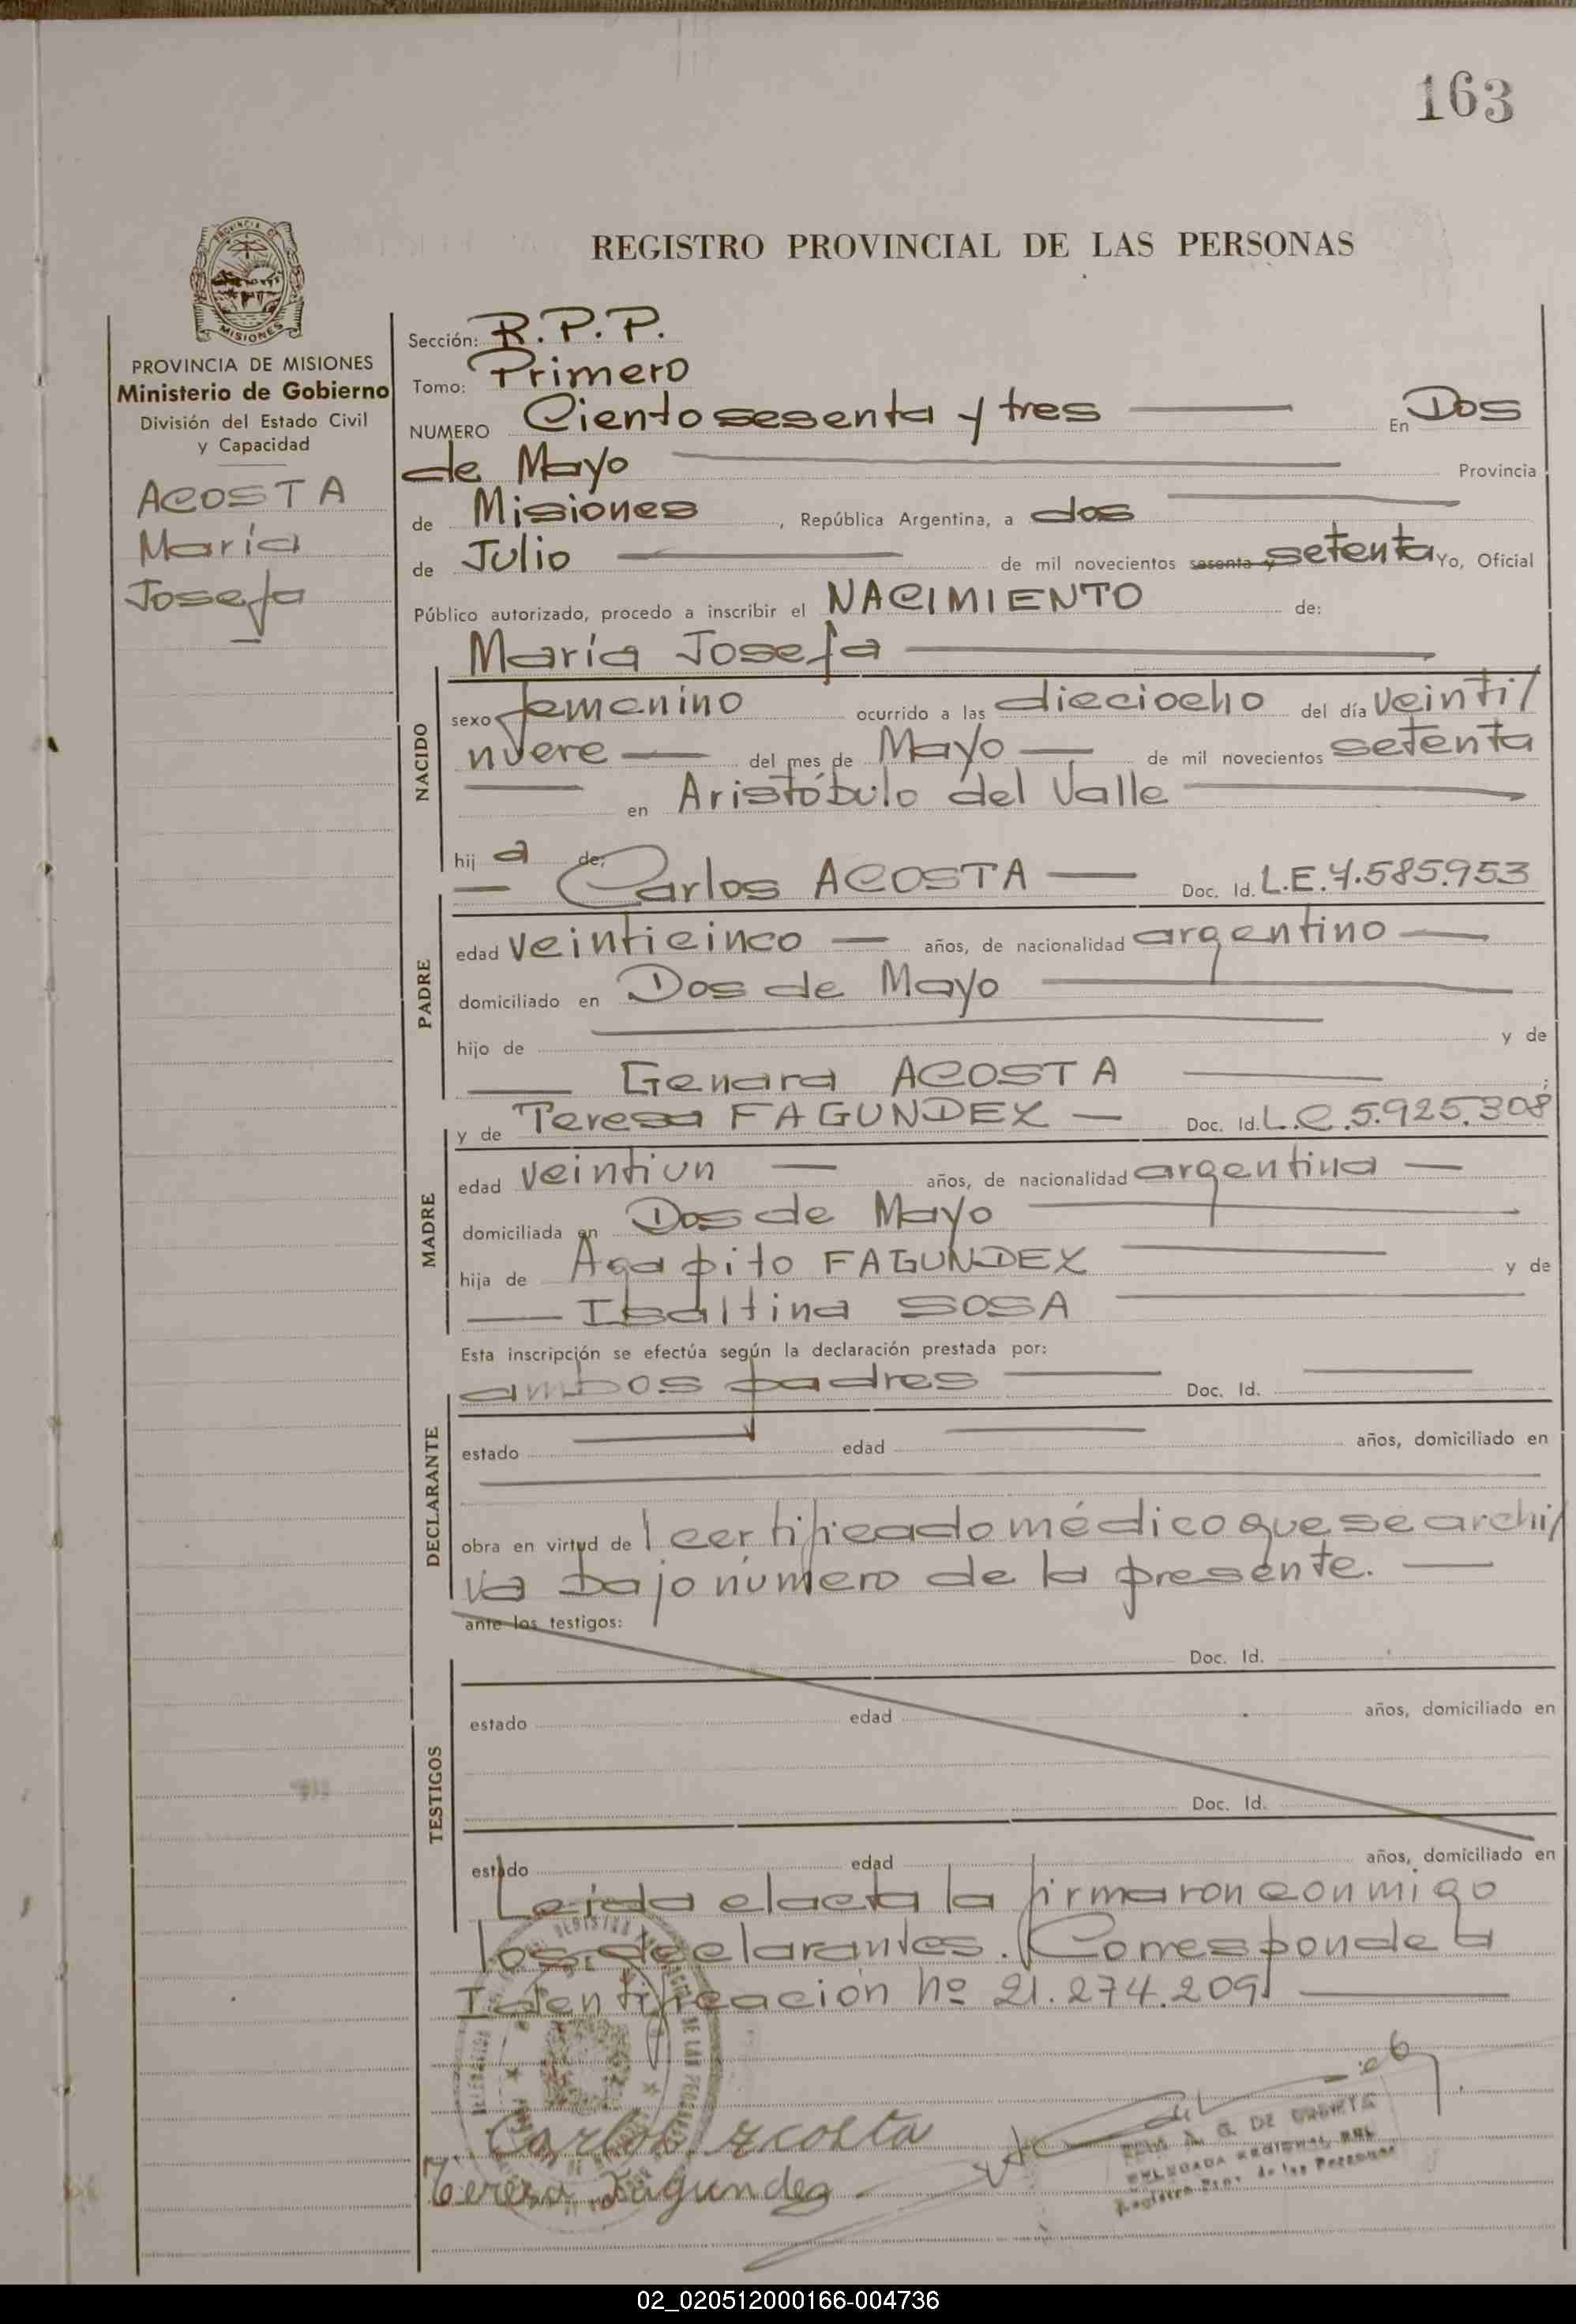 163
PROVINCIA DE
MISIONES
REGISTRO PROVINCIAL DE LAS PERSONAS
PROVINCIA DE MISIONES
Ministerio de Gobierno
División del Estado Civil
y Capacidad
ACOSTA
María
Josefa
Sección: R.P.P.
Tomo: Primero
NUMERO Ciento sesenta y tres En Dos
de Mayo Provincia
de Misiones, República Argentina, a dos
de Julio de mil novecientos sesenta y setenta Yo, Oficial
Público autorizado, procedo a inscribir el NACIMIENTO de:
María Josefa
NACIDO
sexo femenino ocurrido a las dieciocho del día veinti/
nueve del mes de Mayo de mil novecientos setenta
en Aristóbulo del Valle
hij a de:
Carlos ACOSTA Doc. Id. L.E.7.585.953
PADRE
edad veinticinco años, de nacionalidad argentino
domiciliado en Dos de Mayo
hijo de y de
Genara ACOSTA
y de Teresa FAGUNDEZ Doc. Id. L.C.5.925.308
MADRE
edad veintiun años, de nacionalidad argentina
domiciliada en Dos de Mayo
hija de Agapito FAGUNDEZ y de
Isaltina SOSA
Esta inscripción se efectúa según la declaración prestada por:
ambos padres Doc. Id.
DECLARANTE
estado edad años, domiciliado en
obra en virtud de l certificado médico que se archi/
va bajo número de la presente.
ante los testigos:
Doc. Id.
TESTIGOS
estado edad años, domiciliado en
Doc. Id.
estado edad años, domiciliado en
Leida el acta la firmaron conmigo
los declarantes. Corresponde la
Identificación nº 21.274.209
Carlos Acosta
Teresa Fagundez
A. G. DE
DELEGADA REGIONAL
Registro Prov. de las Personas
02_020512000166-004736